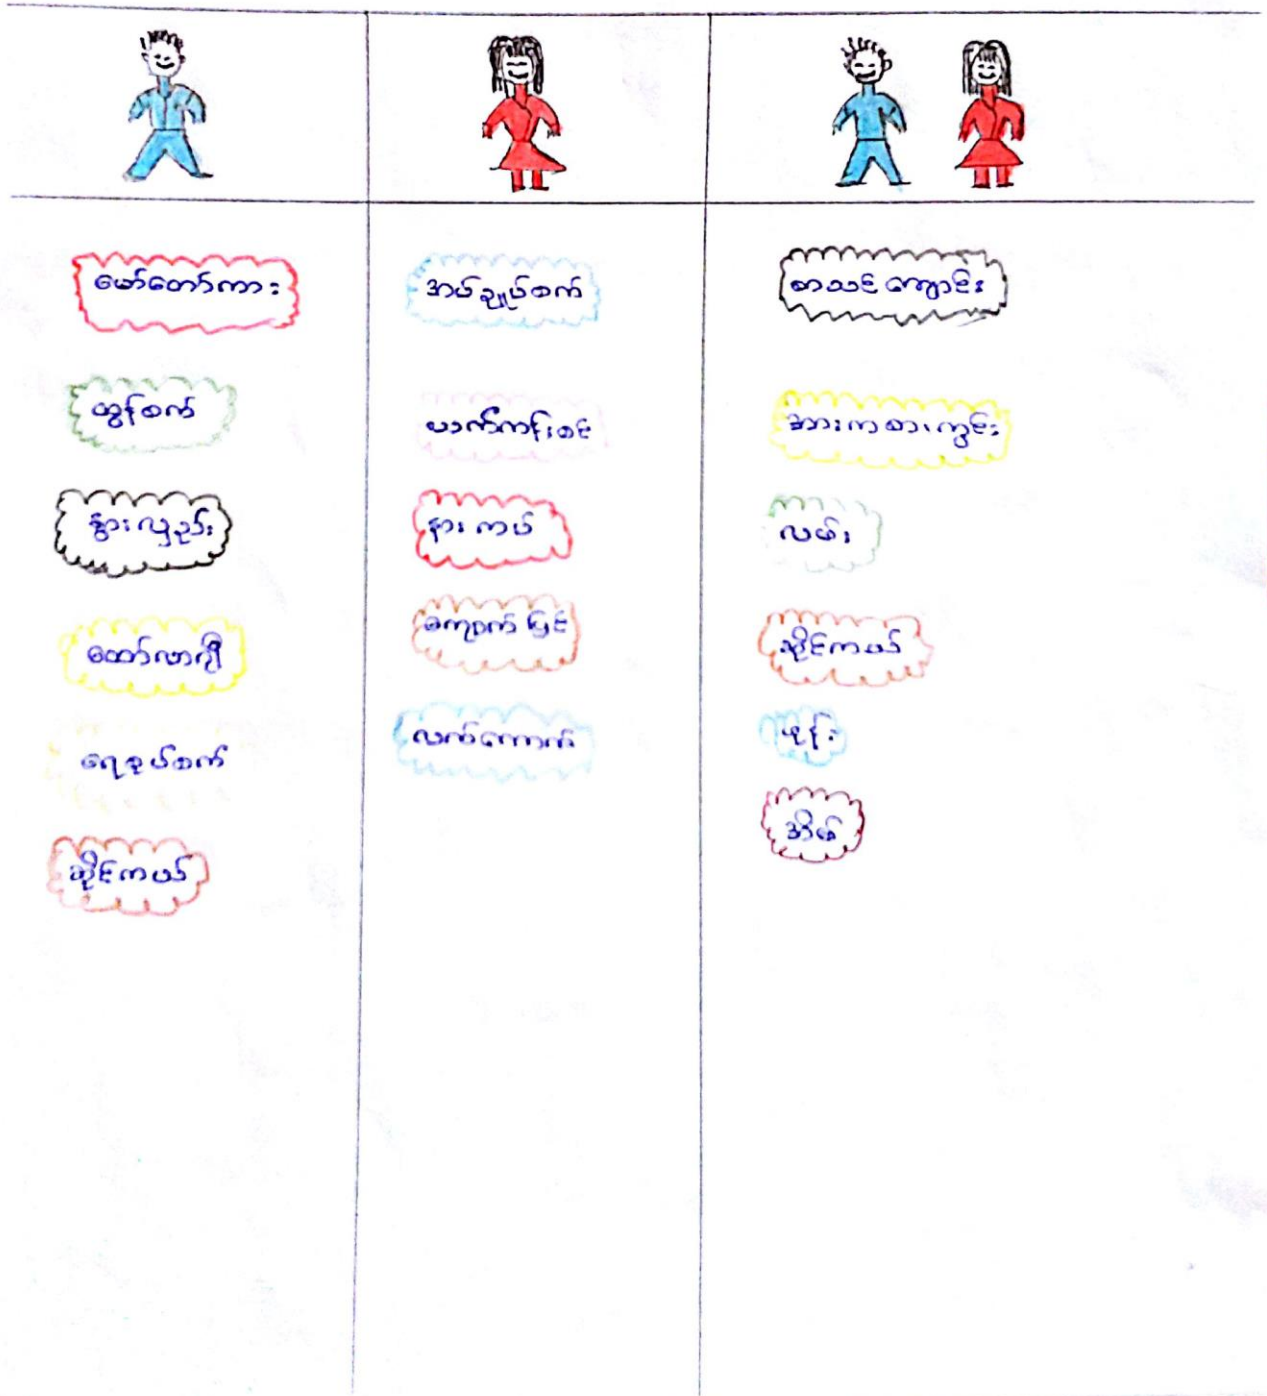 မော်တော်ကား
ထွန်စက်
နွားလှည်း
ထော်လာဂျီ
ရေစုပ်စက်
ဆိုင်ကယ်
အပ်ချုပ်စက်
ယက်ကန်းစင်
နားကပ်
ကျောက်ပြင်
လက်ကောက်
စာသင်ကျောင်း
အားကစားကွင်း
လမ်း
ဆိုင်ကယ်
ဖုန်း
အိမ်